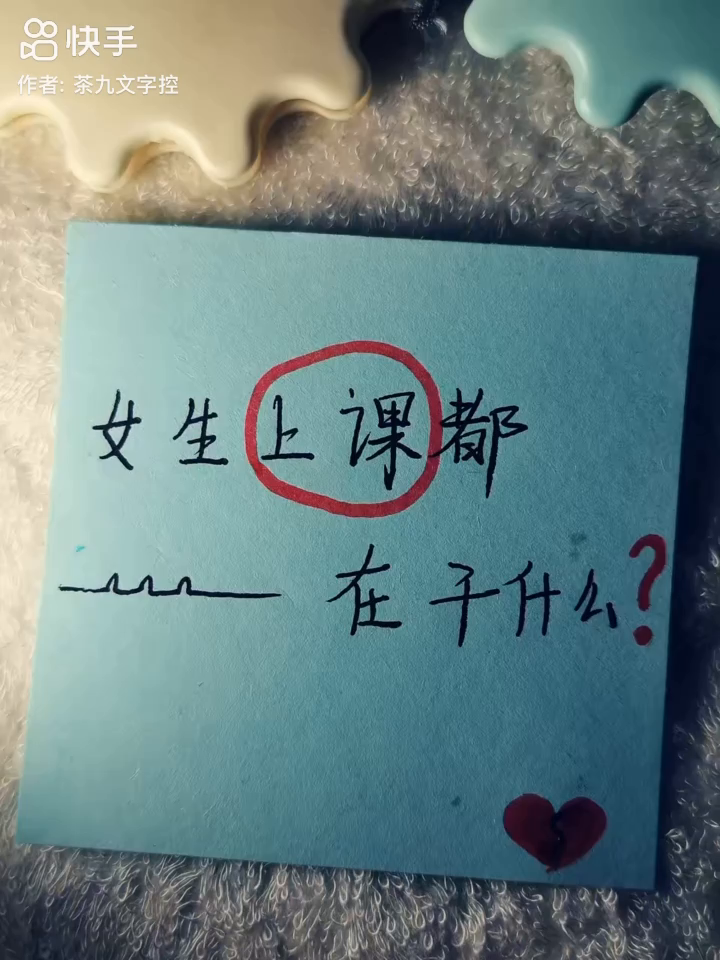 快手
作者: 茶九文字控
女生上课都
在干什么?